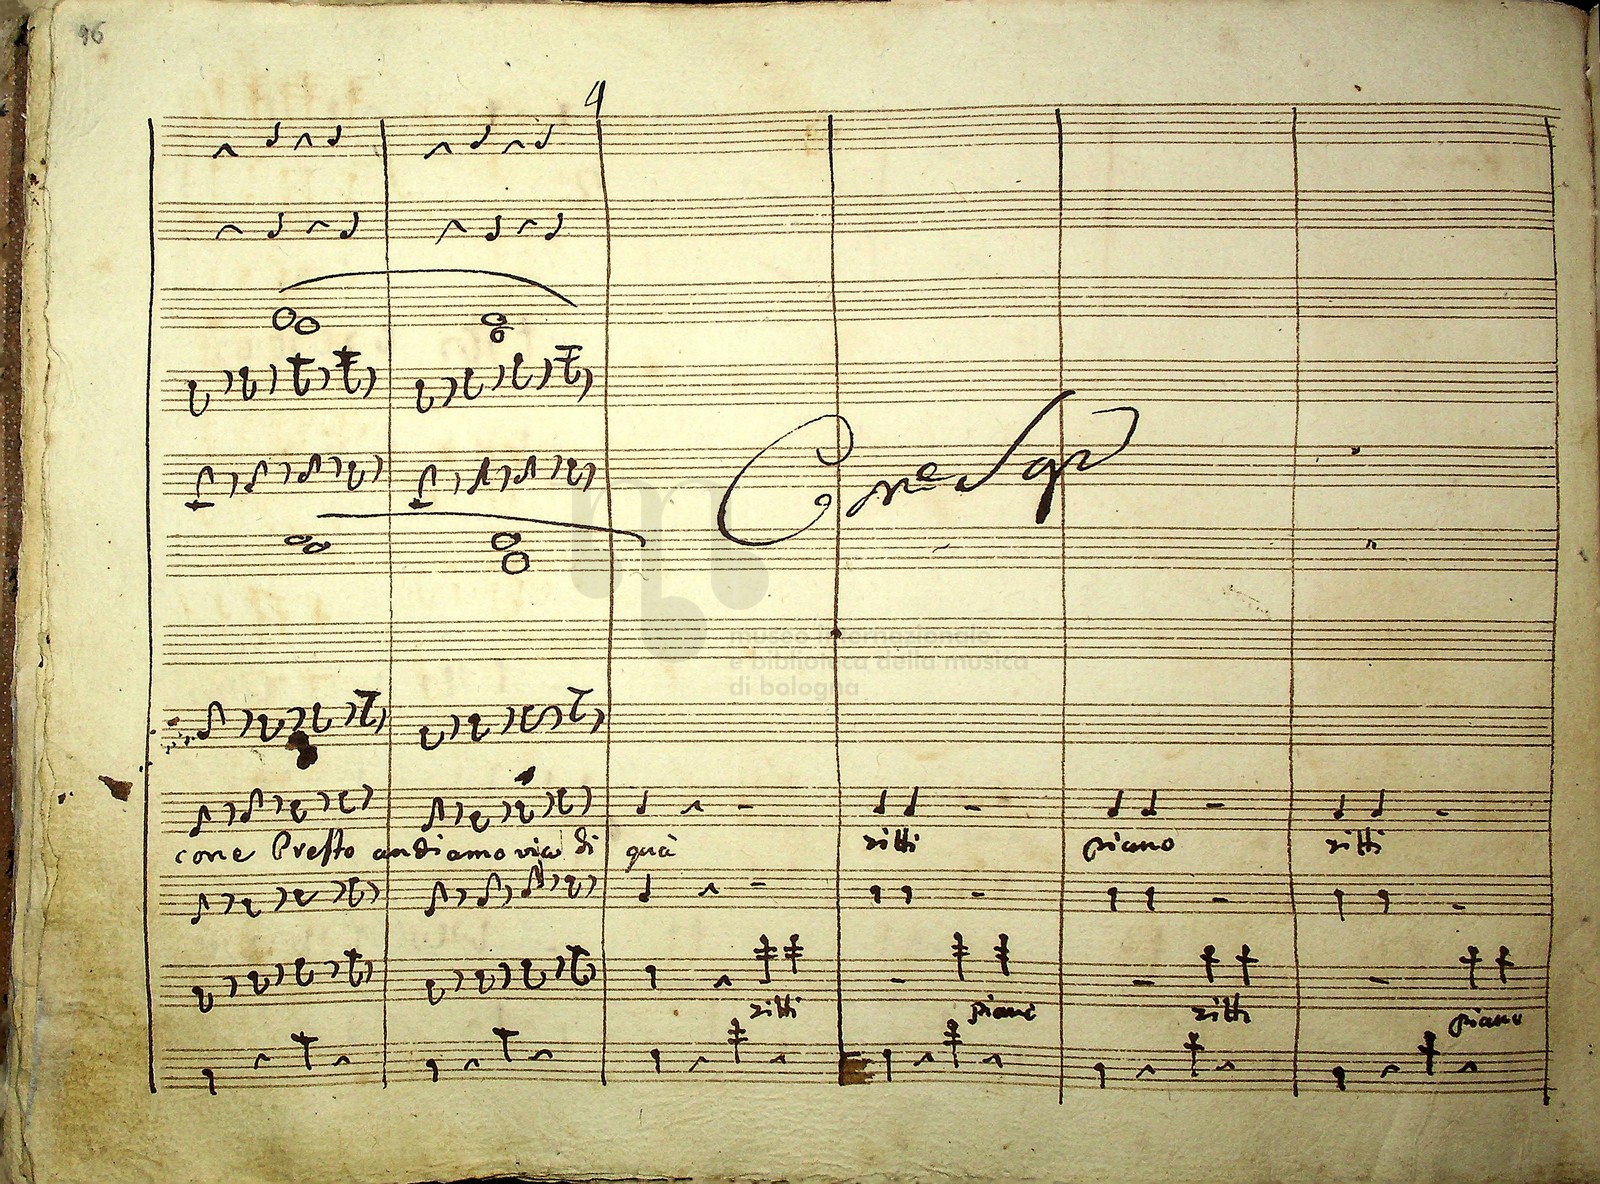 96
9
Come Sopra
museo internazionale
e biblioteca della musica
di bologna
cone Presto andiamo via di quà zitti piano zitti
zitti piano zitti piano